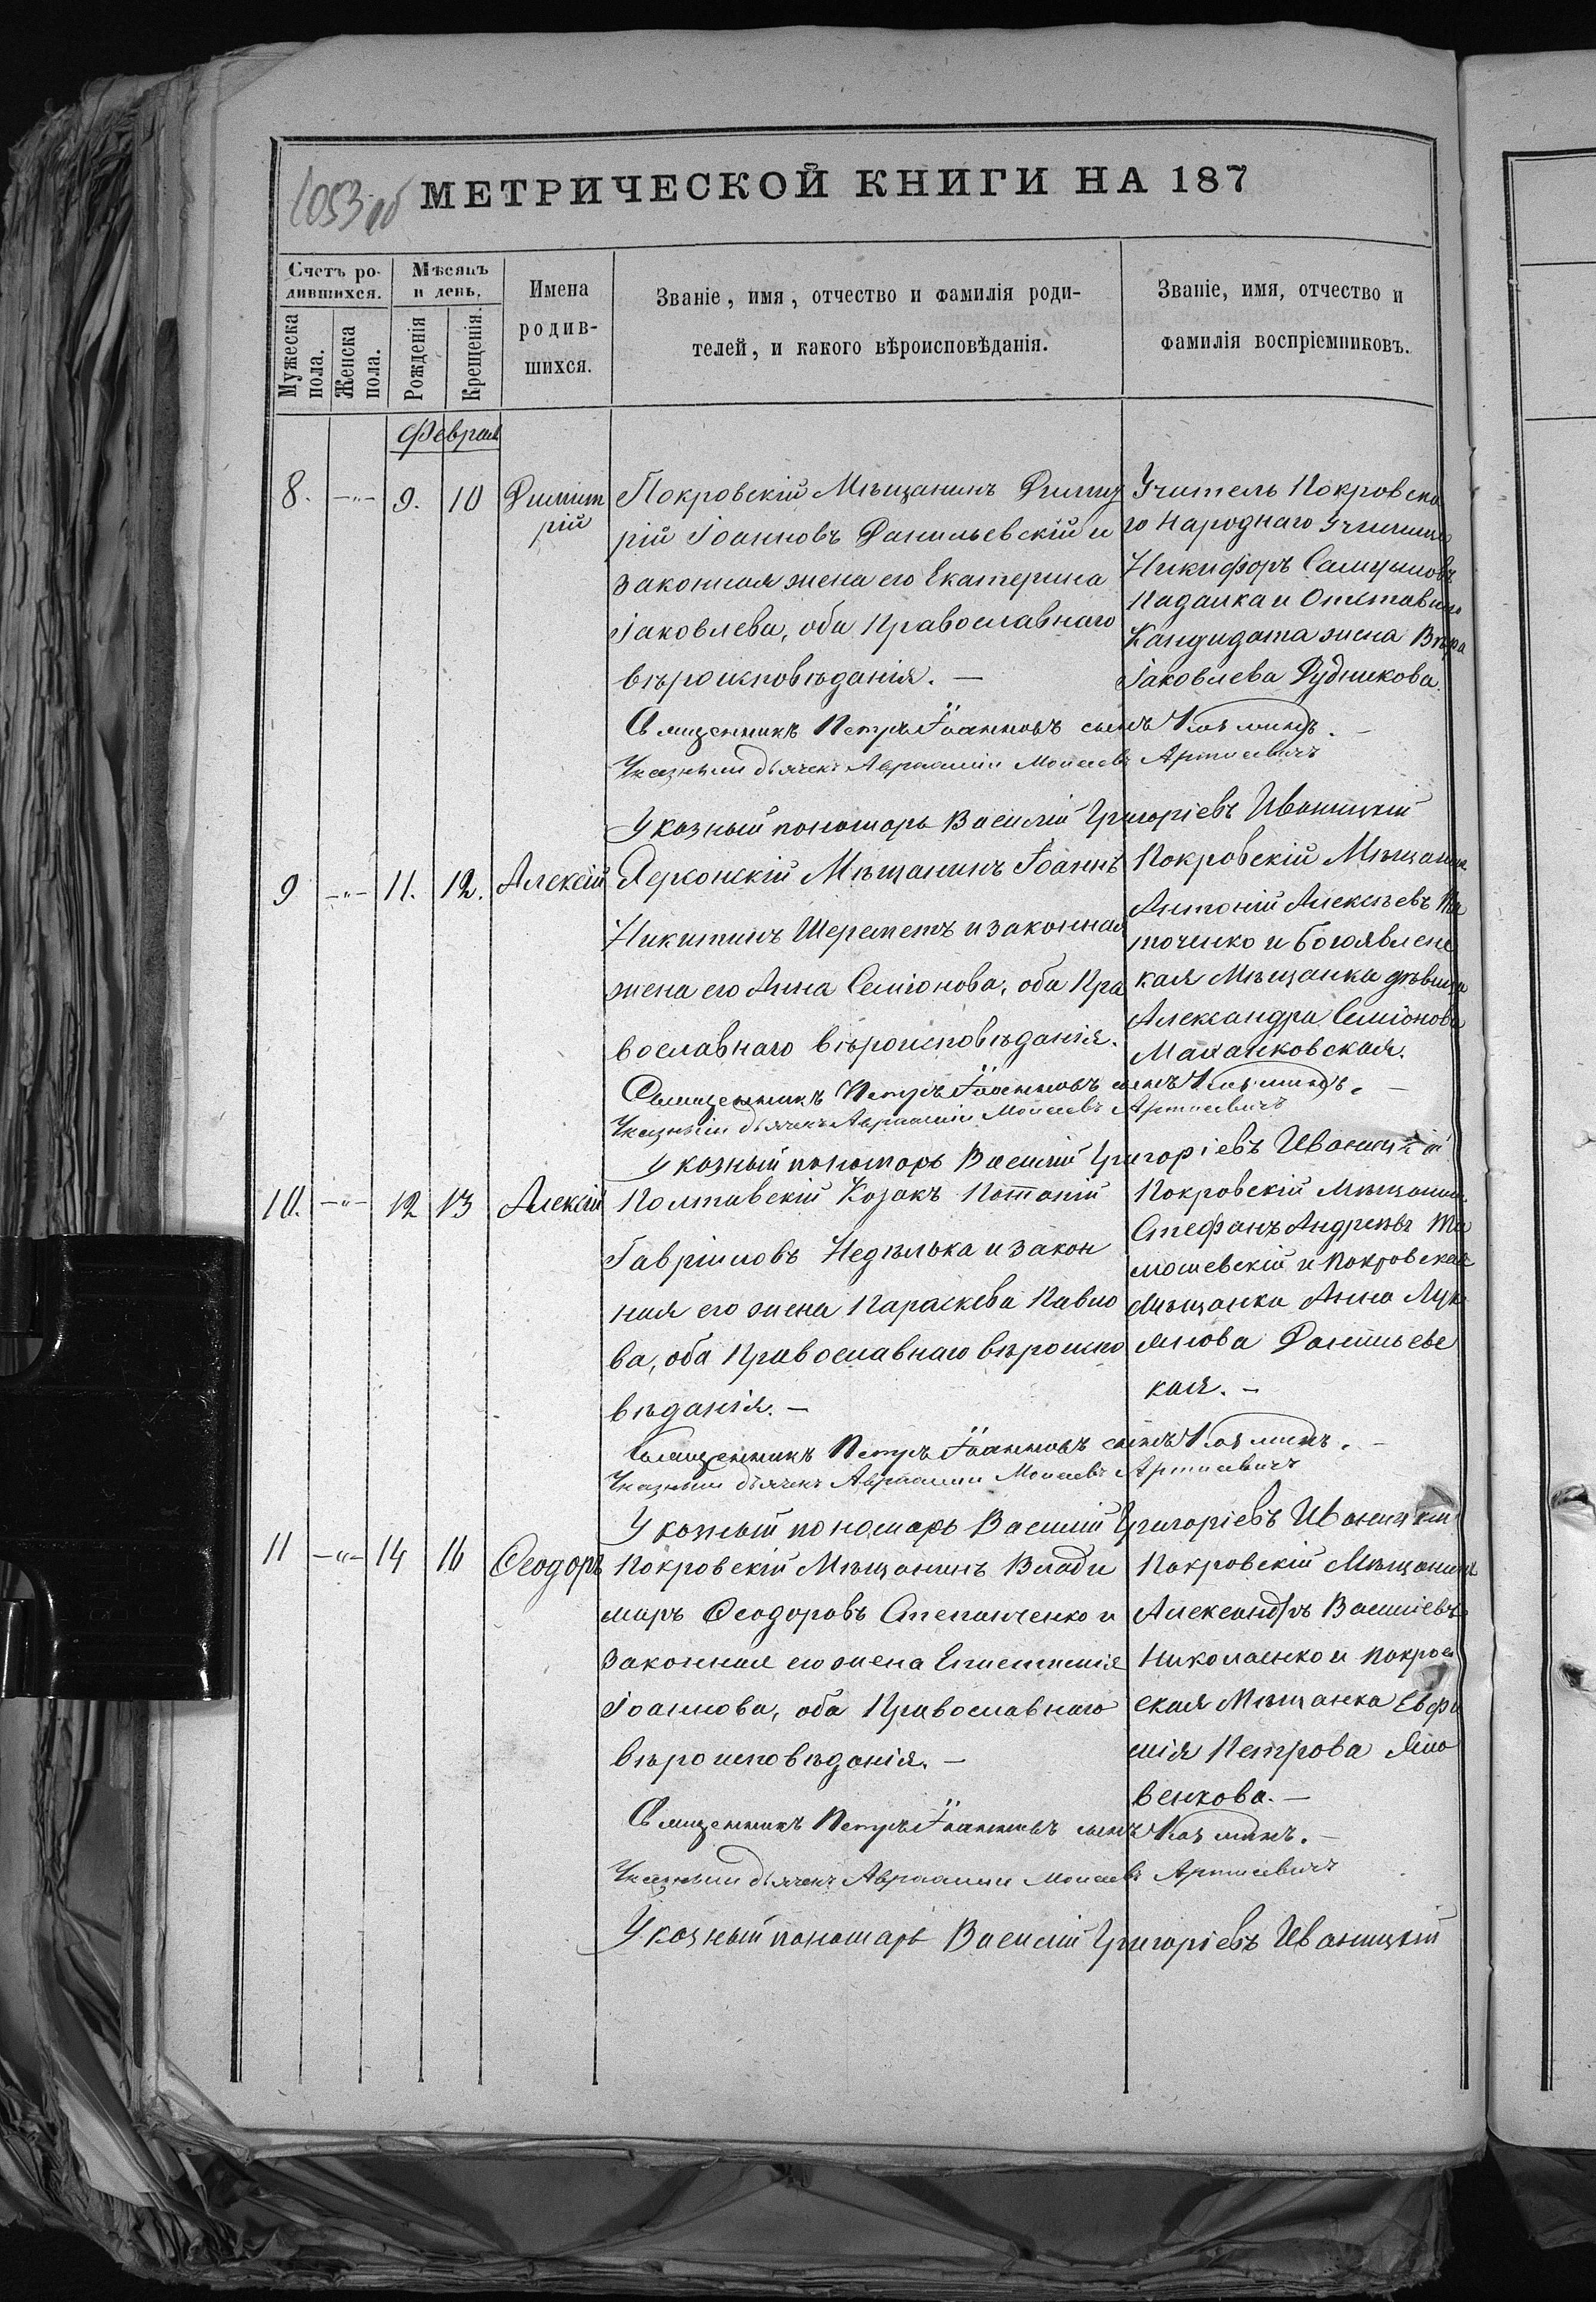 1053 об
МЕТРИЧЕСКОЙ КНИГИ НА 187
Счетъ ро-
дившихся.
Мужеска
пола.
Женска
пола.
Мѣсяцъ
и день.
Рожденія
Крещенія.
Имена
родив-
шихся.
Званіе, имя, отчество и фамилія роди-
телей, и какого вѣроисповѣданія.
Званіе, имя, отчество и
фамилія воспріемниковъ.
Февраль
8. -"- 9. 10 Димит
рій
Покровскій Мѣщанинъ Димит
рій Іоанновъ Данильевскій и
законная жена его Екатерина
Іаковлева, оба Православнаго
вѣроисповѣданія. —
Учитель Покровска
го Народнаго Училища
Никифоръ Самуиловъ
Падалка и Отставн
Кандидата жена Вѣра
Іаковлева Рудникова.
Священникъ Петръ Іоанновъ сынъ. —
Указный дьячекъ Авраамій Моисеевъ
Указный пономарь Василій Григоріевъ Иваницкій
9 -"- 11. 12. Алексій
Херсонскій Мѣщанинъ Іоаннъ
Никитинъ Шереметъ и законная
жена его Анна Семіонова, оба Пра
вославнаго вѣроисповѣданія.
Покровскій Мѣщанинъ
Антоній Алексѣевъ
точенко и Богоявленс
кая Мѣщанка дѣвица
Александра Семіонова
Маханковская.
Священникъ Петръ Іоанновъ сынъ. —
Указный дьячекъ Авраамій Моисеевъ
Указный пономарь Василій Григоріевъ Иваницкій
10. -"- 12 13 Алексій
Полтавскій Козакъ Потапій
Гавріиловъ Недѣлька и закон
ная его жена Параскева Павло
ва, оба Православнаго вѣроиспо
вѣданія. —
Покровскій Мѣщанин.
Стефанъ Андреевъ То
мошевскій и Покровская
Мѣщанка Анна Лук
янова Данильевс
кая. —
Священникъ Петръ Іоанновъ сынъ. —
Указный дьячекъ Авраамій Моисеевъ
Указный пономарь Василій Григоріевъ Иваницкій
11 -"- 14 16 Ѳеодоръ
Покровскій Мѣщанинъ Влади
миръ Ѳеодоровъ Степанченко и
Законная его жена Епистимія
Іоаннова, оба Православнаго
вѣроисповѣданія. —
Покровскій Мѣщанинъ
Александръ Василіевъ
Николаенко и Покров
ская Мѣщанка Евфи
мія Петрова Яко
венкова. —
Священникъ Петръ Іоанновъ сынъ. —
Указный дьячекъ Авраамій Моисеевъ
Указный пономарь Василій Григоріевъ Иваницкій